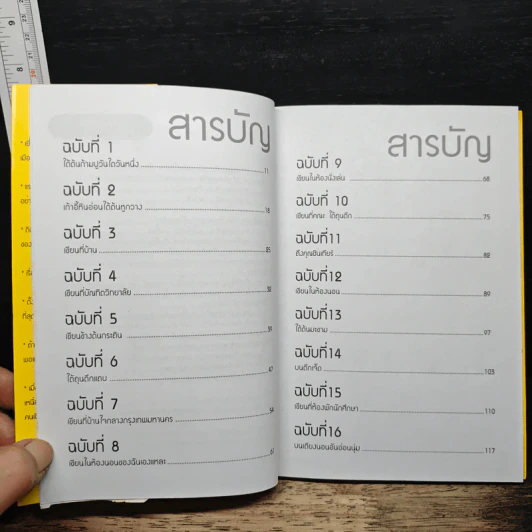 สารบัญ
ฉบับที่ 1
ใต้ต้นก้ามปูวันใดวันหนึ่ง 11
ฉบับที่ 2
เก้าอี้หินอ่อนใต้ต้นหูกวาง 18
ฉบับที่ 3
เขียนที่บ้าน 25
ฉบับที่ 4
เขียนที่บัณฑิตวิทยาลัย 32
ฉบับที่ 5
เขียนข้างต้นกระถิน
ฉบับที่ 6
ใต้ถุนตึกแดบ 47
ฉบับที่ 7
เขียนที่บ้านใจกลางกรุงเทพมหานคร 54
ฉบับที่ 8
เขียนในห้องนอนของฉันเองแหละ 61
สารบัญ
ฉบับที่ 9
เขียนในห้องนั่งเล่น 68
ฉบับที่ 10
เขียนที่คณะ ใต้ถุนตึก 75
ฉบับที่11
ถึงคุณอินเทียร์ 82
ฉบับที่12
เขียนในห้องนอน 89
ฉบับที่13
ใต้ต้นมะขาม 97
ฉบับที่14
บนตึกเจ็ด 103
ฉบับที่15
เขียนที่ห้องพักนักศึกษา 110
ฉบับที่16
บนเตียงนอนอันอ่อนนุ่ม 117